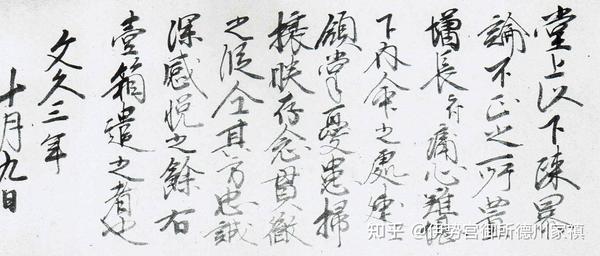 堂上以下陳暴
論不正之所置
增長付痛心難堪
下内命之處速
領掌憂患掃
攘朕存念貫徹
之段全其方忠誠
深感悦之餘右
壹箱遣之者也
文久三年
十月九日
知乎 @伊勢宫御所德川家祺